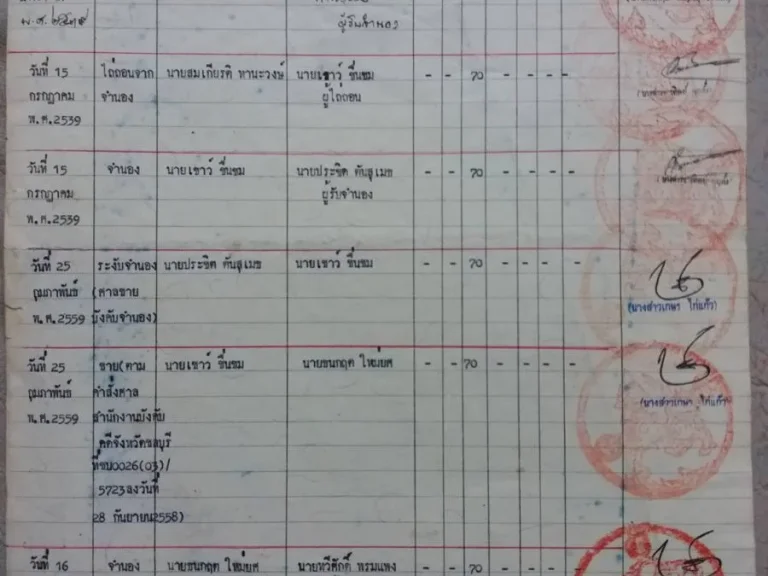 พ.ศ.๒๕๓๙ ผู้รับจำนอง
วันที่ 15 ไถ่ถอนจาก นายสมเกียรติ ทานะวงษ์ นายเชาว์ ชื่นชม - - 70 - - - -
กรกฎาคม จำนอง ผู้ไถ่ถอน
พ.ศ.2539
วันที่ 15 จำนอง นายเชาว์ ชื่นชม นายประชิต คันสุเมข - - 70 - - - -
กรกฎาคม ผู้รับจำนอง
พ.ศ.2539
วันที่ 25 ระงับจำนอง นายประชิต คันสุเมข นายเชาว์ ชื่นชม - - 70 - - - -
กุมภาพันธ์ (ศาลขาย (นางสาวเกษา ไก่แก้ว)
พ.ศ.2559 บังคับจำนอง)
วันที่ 25 ขาย(ตาม นายเชาว์ ชื่นชม นายชนกฤต ใหม่ยศ - - 70 - - - -
กุมภาพันธ์ คำสั่งศาล (นางสาวเกษา ไก่แก้ว)
พ.ศ.2559 สำนักงานบังคับ
คดีจังหวัดชลบุรี
ที่ชบ0026(03)/
5723ลงวันที่
28 กันยายน2558)
วันที่ 16 จำนอง นายชนกฤต ใหม่ยศ นายทวีศักดิ์ พรมแพง - - 70 - - - -